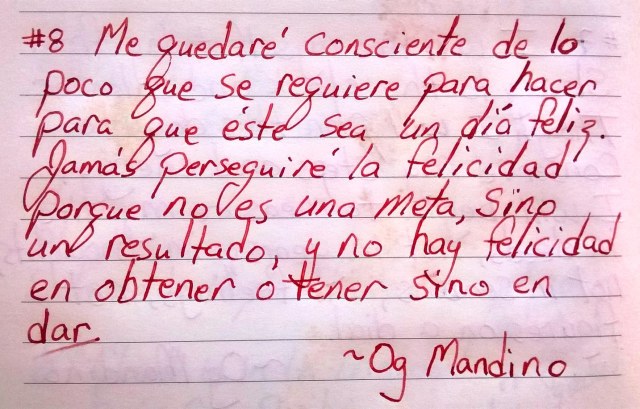 #8 Me quedaré consciente de lo
poco que se requiere para hacer
para que éste sea un día feliz.
Jamás perseguiré la felicidad
porque no es una meta, sino
un resultado, y no hay felicidad
en obtener o tener sino en
dar.
~Og Mandino